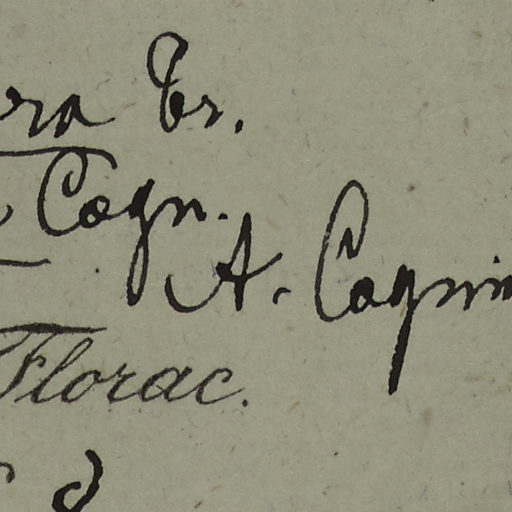 ra Tr.
Cogn.
A. Cogni
Florac.